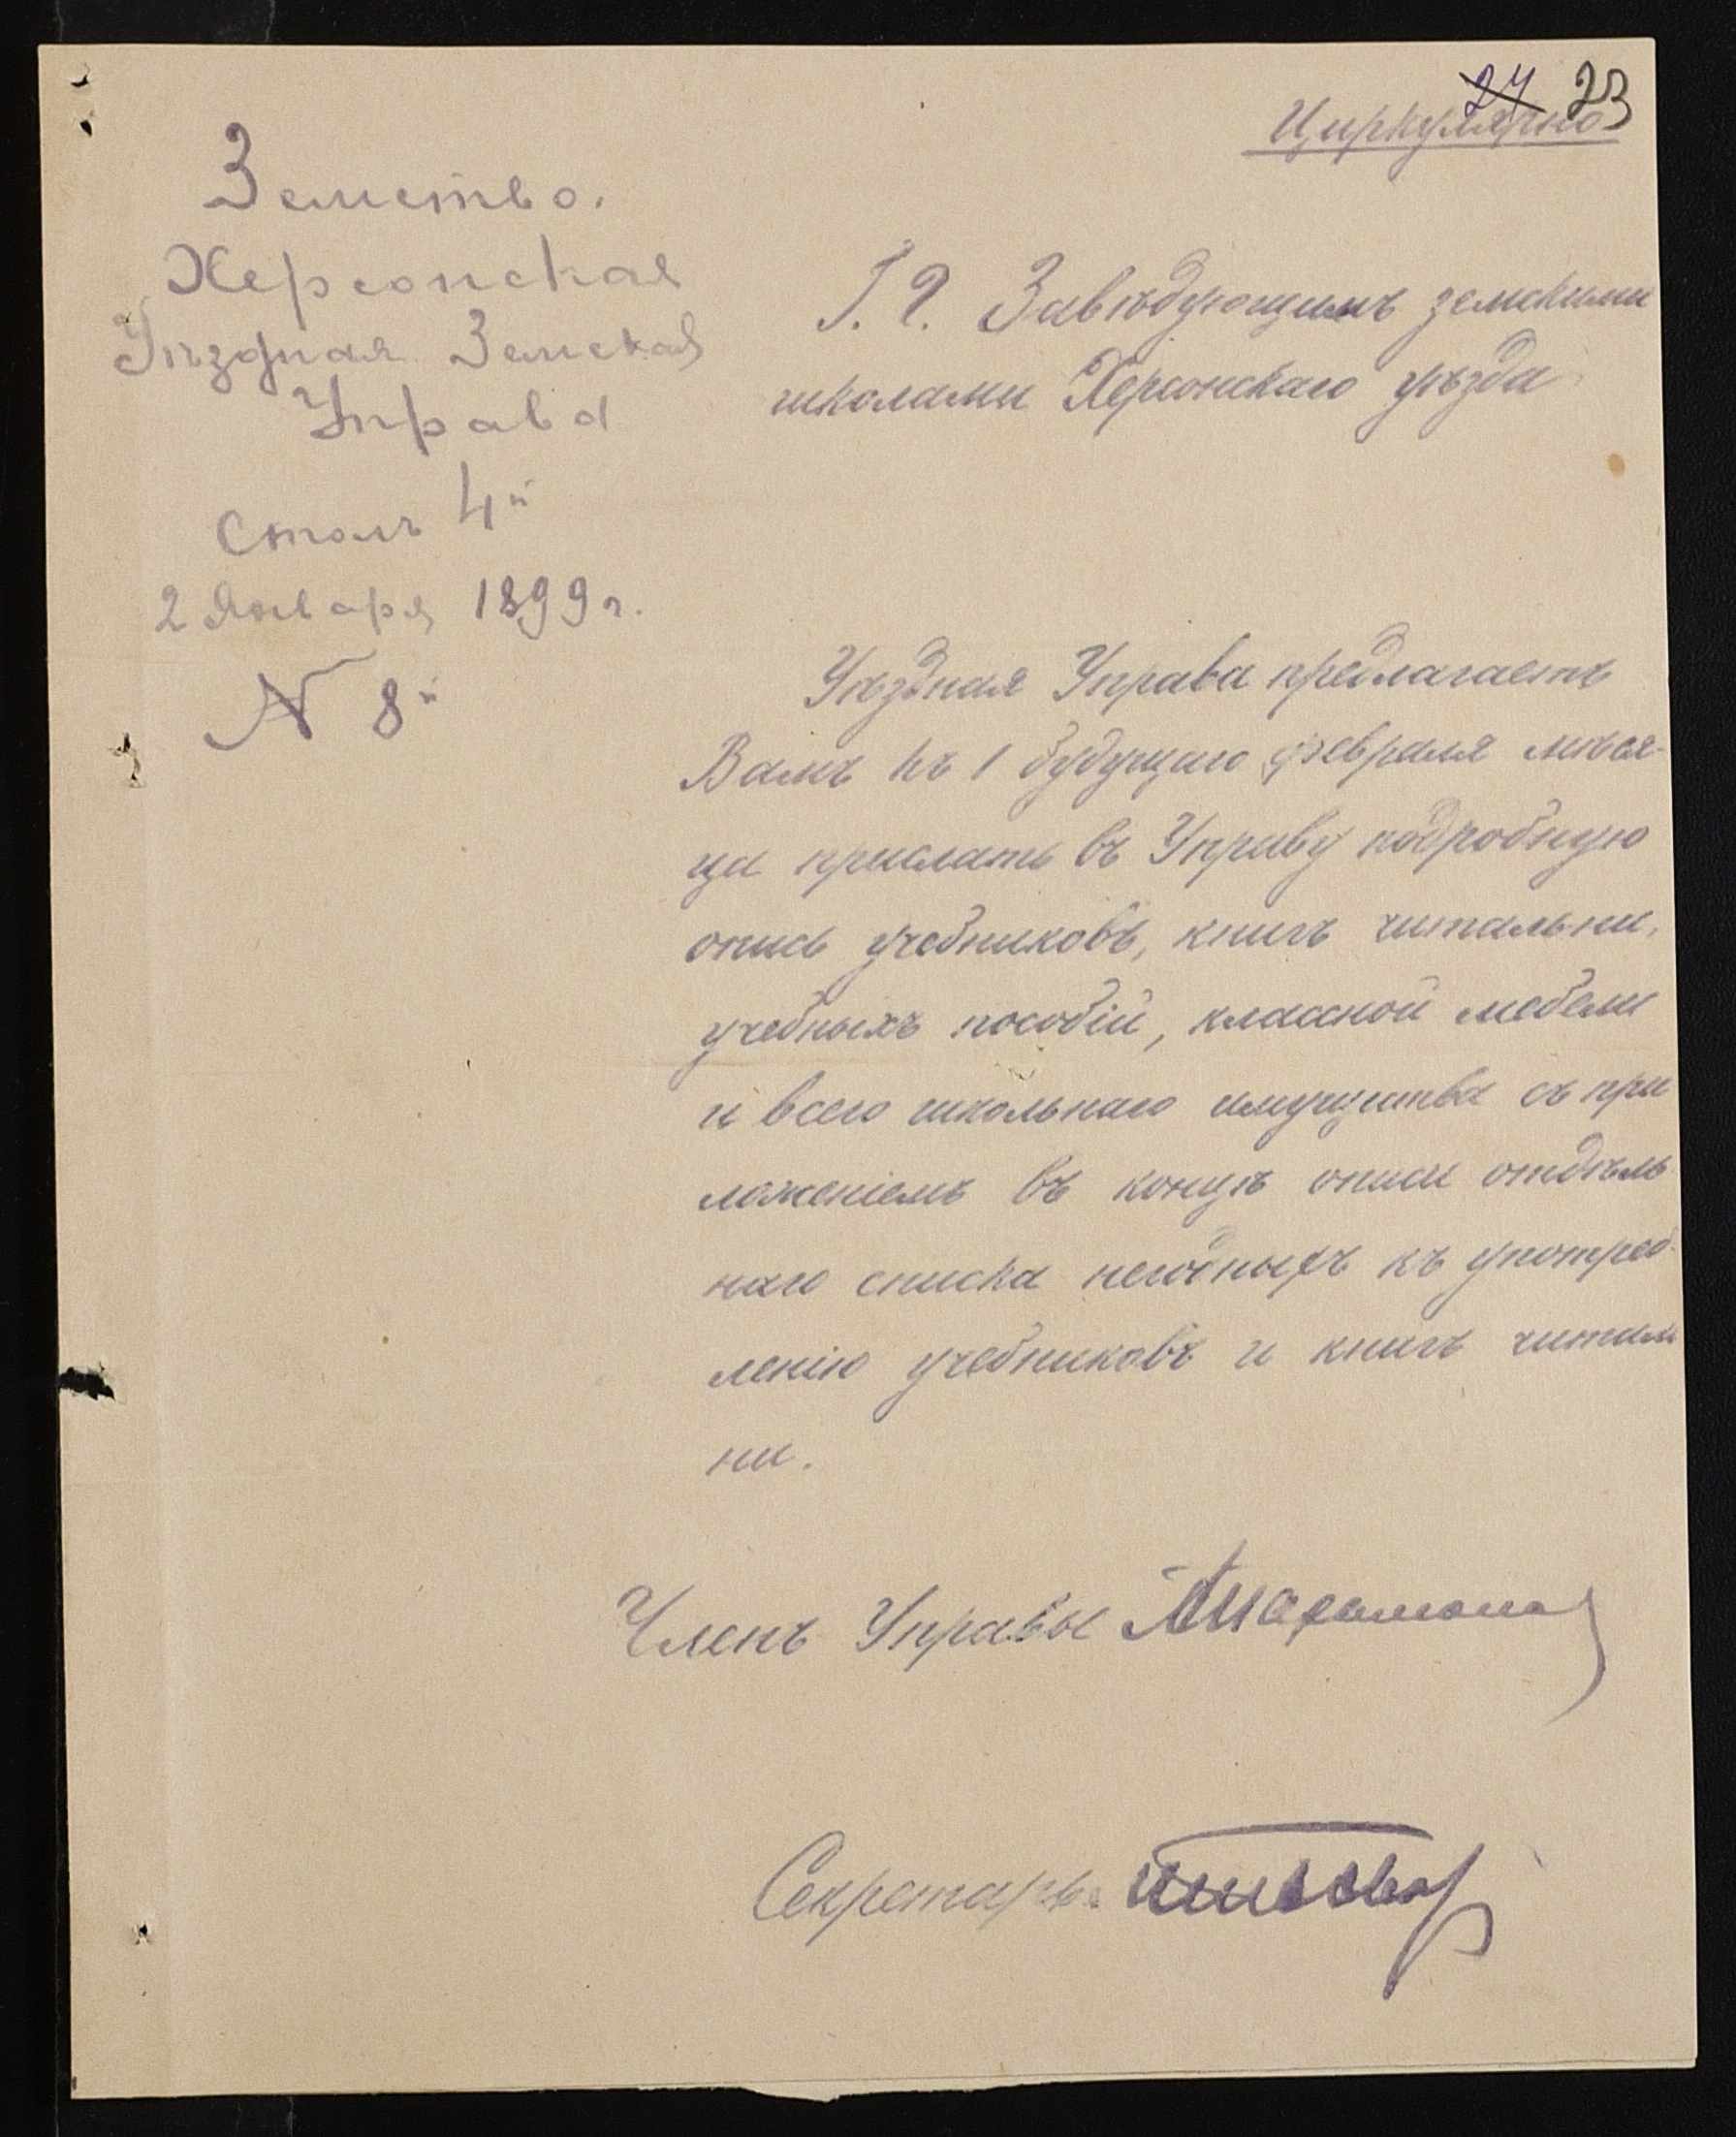 24 23
Циркулярно
Земство.
Херсонская
Уѣздная Земская
Управа
Столъ 4й
2 Января 1899 г.
N 8й
Г. г. Завѣдующимъ земскими
школами Херсонскаго уѣзда
Уѣздная Управа предлагаетъ
Вамъ къ 1 будущаго февраля мѣся-
ца прислать въ Управу подробную
опись учебниковъ, книгъ читальни,
учебныхъ пособій, классной мебели
и всего школьнаго имущества съ при
ложеніемъ въ концѣ описи отдѣль
наго списка негодныхъ къ употреб-
ленію учебниковъ и книгъ читаль
ни.
Членъ Управы
Секретарь